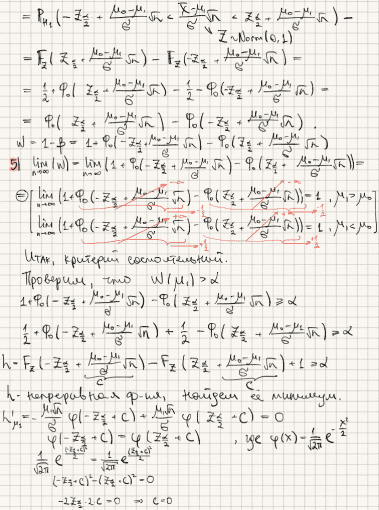 = P_{H_1} (-z_{α/2} + \frac{μ_0-μ_1}{σ}√n < \frac{\overline{X}-μ_1}{σ}√n < z_{α/2} + \frac{μ_0-μ_1}{σ}√n) =
Z~Norm(0,1)
= F_Z(z_{α/2} + \frac{μ_0-μ_1}{σ}√n) - F_Z(-z_{α/2} + \frac{μ_0-μ_1}{σ}√n) =
= \frac{1}{2} + Φ_0(z_{α/2} + \frac{μ_0-μ_1}{σ}√n) - \frac{1}{2} - Φ_0(-z_{α/2} + \frac{μ_0-μ_1}{σ}√n) =
= Φ_0(z_{α/2} + \frac{μ_0-μ_1}{σ}√n) - Φ_0(-z_{α/2} + \frac{μ_0-μ_1}{σ}√n).
W = 1-β = 1+Φ_0(-z_{α/2} + \frac{μ_0-μ_1}{σ}√n) - Φ_0(z_{α/2} + \frac{μ_0-μ_1}{σ}√n)
5) lim_{n→∞}(W) = lim_{n→∞}(1+Φ_0(-z_{α/2} + \frac{μ_0-μ_1}{σ}√n) - Φ_0(z_{α/2} + \frac{μ_0-μ_1}{σ}√n)) =
⊜ lim_{n→∞}(1+Φ_0(-z_{α/2} + \frac{μ_0-μ_1}{σ}√n) - Φ_0(z_{α/2} + \frac{μ_0-μ_1}{σ}√n)) = 1, μ_1>μ_0
lim_{n→∞}(1+Φ_0(-z_{α/2} + \frac{μ_0-μ_1}{σ}√n) - Φ_0(z_{α/2} + \frac{μ_0-μ_1}{σ}√n)) = 1, μ_1<μ_0
Итак, критерий состоятельный.
Проверим, что W(μ_1) > α
1+Φ_0(-z_{α/2} + \frac{μ_0-μ_1}{σ}√n) - Φ_0(z_{α/2} + \frac{μ_0-μ_1}{σ}√n) ≥ α
\frac{1}{2} + Φ_0(-z_{α/2} + \frac{μ_0-μ_1}{σ}√n) + \frac{1}{2} - Φ_0(z_{α/2} + \frac{μ_0-μ_1}{σ}√n) ≥ α
h = F_Z(-z_{α/2} + \frac{μ_0-μ_1}{σ}√n) - F_Z(z_{α/2} + \frac{μ_0-μ_1}{σ}√n) + 1 ≥ α
C C
h - непрерывная ф-ия, найдем её минимум.
φ(-z_{α/2} + C) = φ(z_{α/2} + C), где φ(x) = \frac{1}{√2π} e^{-\frac{x²}{2}}
(-z_{α/2} + C)² - (z_{α/2} + C)² = 0
-2z_{α/2}·2C = 0 ⇒ C = 0